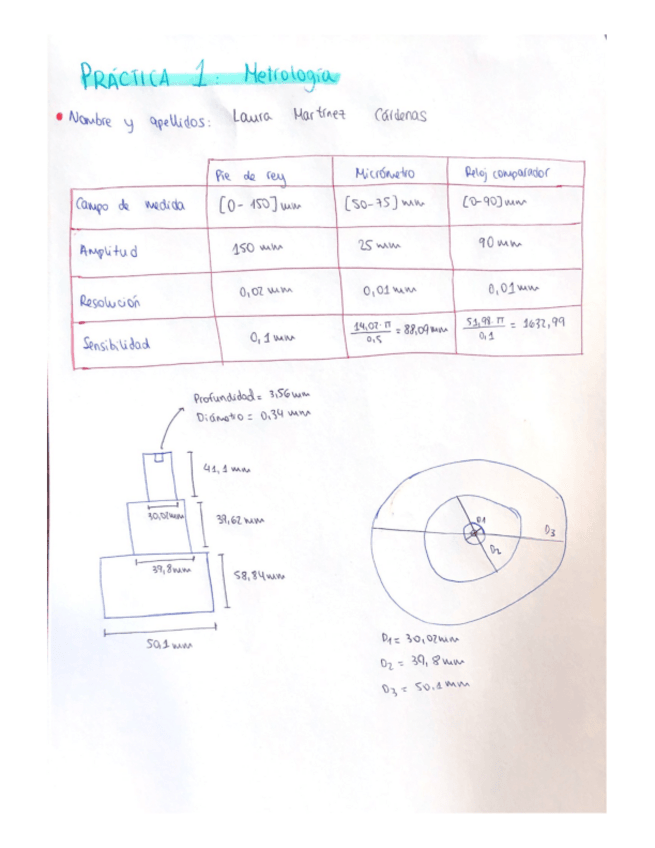 PRÁCTICA 1: Metrología
Nombre y apellidos: Laura Martínez Cárdenas
Pie de rey Micrómetro Reloj comparador
Campo de medida [0-150] mm [50-75] mm [0-90] mm
Amplitud 150 mm 25 mm 90 mm
Resolución 0,02 mm 0,01 mm 0,01 mm
Sensibilidad 0,1 mm 14,02·π / 0,5 = 88,09 mm 51,98·π / 0,1 = 1632,99
Profundidad = 3,56 mm
Diámetro = 0,34 mm
41,1 mm
30,02 mm
39,62 mm
39,8 mm
58,84 mm
50,1 mm
D1
D2
D3
D1 = 30,02 mm
D2 = 39,8 mm
D3 = 50.1 mm